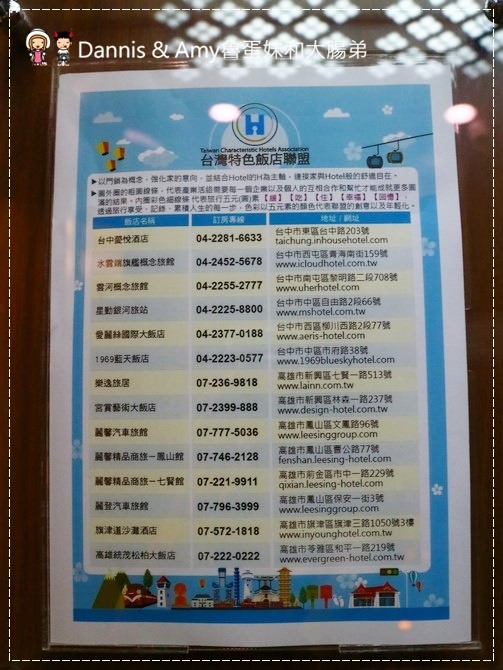 Dannis & Amy魯蛋妹和大腸弟
H
Taiwan Characteristic Hotels Association
台灣特色飯店聯盟
▶以門鎖為概念，強化家的意向，並結合Hotel的H為主軸，連接家與Hotel般的舒適自在。
▶圖外圈的粗圓線條，代表產業活絡需要每一個企業以及個人的互相合作和幫忙才能成就更多圓滿的結果。內圈彩色細線條 代表旅行五元(圓)素
透過旅行享受、記錄、累積人生的每一步，色彩以五元素的顏色代表聯盟的創意以及年輕化。
飯店名稱 訂房專線 地址 / 網址
台中薆悅酒店 04-2281-6633 台中市東區台中路203號
taichung.inhousehotel.com
水雲端旗艦概念旅館 04-2452-5678 台中市西屯區青海南街159號
www.icloudhotel.com.tw
雲河概念旅館 04-2255-2777 台中市南屯區黎明路二段708號
www.uherhotel.com
星動銀河旅站 04-2225-8800 台中市中區自由路2段66號
www.mshotel.com.tw
愛麗絲國際大飯店 04-2377-0188 台中市西區柳川西路2段77號
www.aeris-hotel.com
1969藍天飯店 04-2223-0577 台中市中區市府路38號
www.1969blueskyhotel.com
樂逸旅居 07-236-9818 高雄市新興區七賢一路513號
www.lainn.com.tw
宮賞藝術大飯店 07-2399-888 高雄市新興區林森一路237號
www.design-hotel.com.tw
麗馨汽車旅館 07-777-5036 高雄市鳳山區文鳳路96號
www.leesinggroup.com
麗馨精品商旅－鳳山館 07-746-2128 高雄市鳳山區曹公路77號
fenshan.leesing-hotel.com
麗馨精品商旅－七賢館 07-221-9911 高雄市前金區市中一路229號
qixian.leesing-hotel.com
麗登汽車旅館 07-796-3999 高雄市鳳山區保安一街3號
www.leesinggroup.com
旗津道沙灘酒店 07-572-1818 高雄市旗津區旗津三路1050號3樓
www.inyounghotel.com.tw
高雄統茂松柏大飯店 07-222-0222 高雄市苓雅區和平一路219號
www.evergreen-hotel.com.tw